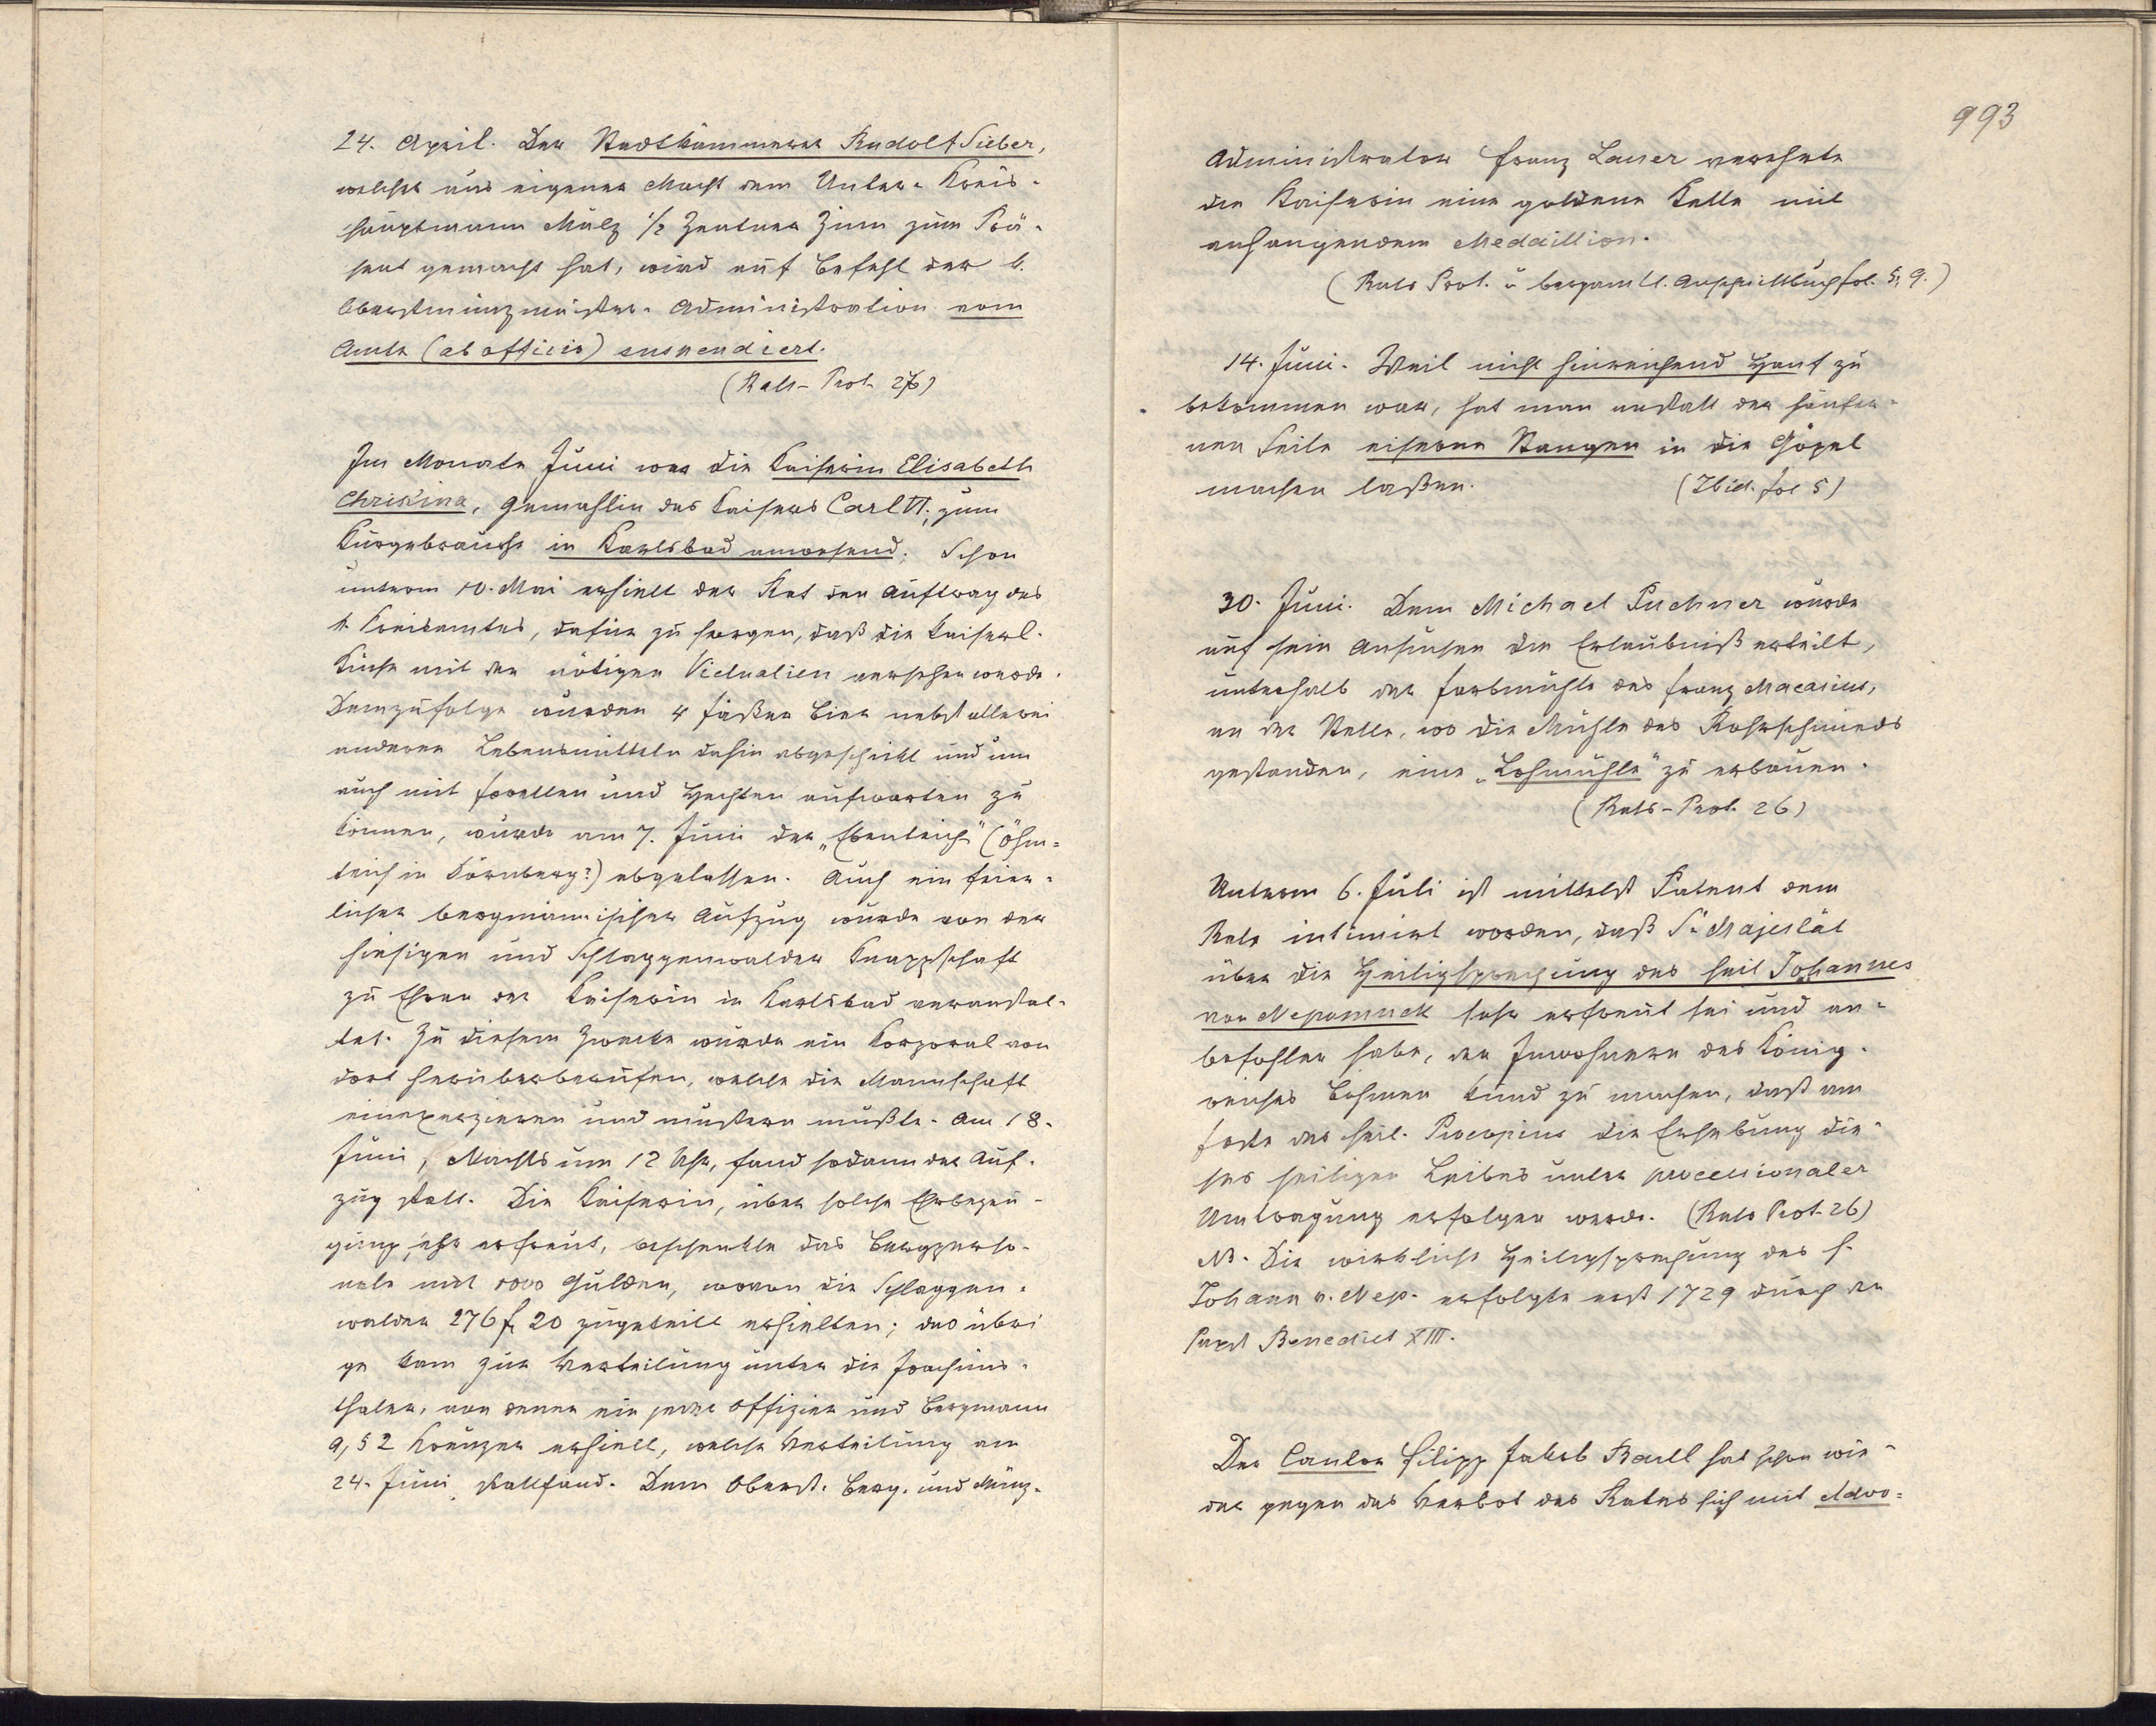 24. April. Der Stadtkämmerer Rudolf Sieber,
welcher aus eigener Macht dem Unter-Kreis-
hauptmann Mulz 1/2 Zentner Zinn zum Prä-
sent gemacht hat, wird auf Befehl der k.
Oberstmünzmeister-Administration vom
Amte (ab officio) suspendiert.
(Rats-Prot. 26)
Im Monate Juni war die Kaiserin Elisabeth
Christina, Gemahlin des Kaisers Carl VI., zum
Kurgebrauche in Karlsbad anwesend. Schon
unterm 10. Mai erhielt der Rat den Auftrag des
k. Kreisamtes, dafür zu sorgen, daß die kaiserl.
Küche mit den nötigen Victualien versehen werde.
Demzufolge wurden 4 Fäßer Bier nebst allerei
anderen Lebensmitteln dahin abgeschickt und um
auch mit Forellen und Hechten aufwarten zu
können, wurde am 7. Juni der „Ebenteich" (Öhm-
teich in Dürnberg?) abgelassen. Auch ein feier-
licher bergmännischer Aufzug wurde von der
hiesigen und Schlaggenwalder Knappschaft
zu Ehren der Kaiserin in Karlsbad veranstal-
tet. Zu diesem Zwecke wurde ein Korporal von
dort herüberberufen, welche die Mannschaft
einexerzieren und mustern mußte. Am 18.
Juni, Nachts um 12 Uhr, fand sodann der Auf-
zug statt. Die Kaiserin, über solche Ehrbezeu-
gung sehr erfreut, beschenkte das Bergperso-
nale mit 1000 Gulden, wovon die Schlaggen-
walder 276 f 20 zugeteilt erhielten; das übri
ge kam zur Verteilung unter die Joachims-
thaler, von denen ein jeder Offizier und Bergmann
a, 52 Kreuzer erhielt, welche Verteilung am
24. Juni stattfand. Dem Oberst-Berg- und Münz-
993
Administrator Franz Lauer verehrte
die Kaiserin eine goldene Kette mit
anhangendem Medaillion.
(Rats Prot. u bergamtl. fol. 5, 9.)
14. Juni. Weil nicht hinreichend Hanf zu
bekommen war, hat man anstatt der hänfer-
nen Seile eiserne Stangen in die Göpel
machen laßen. (Ibid. fol 5)
30. Juni. Dem Michael Puchner wurde
auf sein Ansuchen die Erlaubniß erteilt,
unterhalb der Farbmühle des Franz Macasius,
an der Stelle, wo die Mühle des Rohrschmieds
gestanden, eine „Lohmühle" zu erbauen.
(Rats-Prot. 26)
Unterm 6. Juli ist mittelst Patent dem
Rate intimirt worden, daß Se Majestät
über die Heiligsprechung des heil Johannes
von Nepomuck sehr erfreut sei und an-
befohlen habe, den Inwohnern des König-
reiches Böhmen kund zu machen, daß am
Feste des heil. Procopius die Erhebung die-
ses heiligen Leibes unter processionaler
Umtragung erfolgen werde. (Rats Prot. 26)
NB. Die wirkliche Heiligsprechung des h.
Johann v. Nep. erfolgte erst 1729 durch den
Papst Benedict XIII.
Der Cantor Filipp Jakob Baull hat schon wie-
der gegen das Verbot des Rates sich mit Advo-